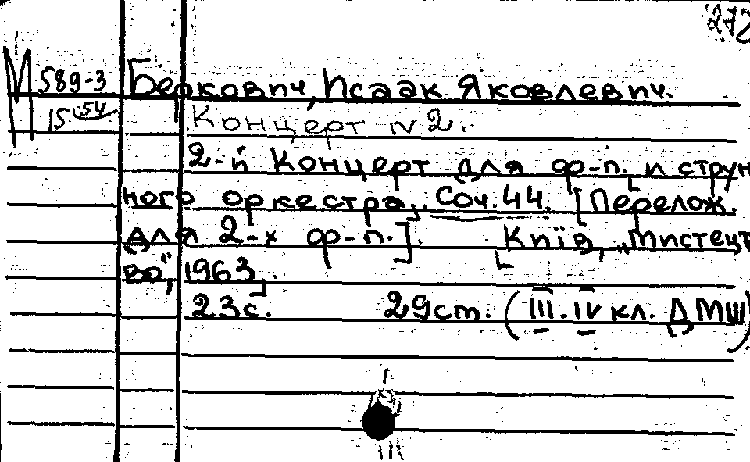 272
М 589-3 Беркович, Исаак Яковлевич.
15 54 Концерт № 2.
2-й концерт для ф-п. и струн
ного оркестра. Соч. 44. [Перелож.
для 2-х ф-п.] [Київ, „Мистецт
во", 1963]
23 с. 29 ст. (III-IV кл. ДМШ)